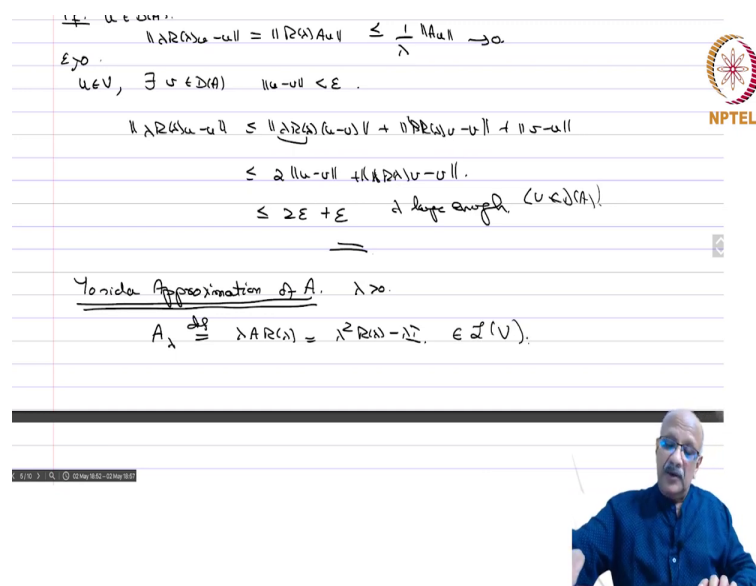 Pf. u ∈ D(A).
‖λR(λ)u-u‖ = ‖R(λ)Au‖ ≤ 1/λ ‖Au‖ → 0
ε>0.
u∈V, ∃ v ∈ D(A) ‖u-v‖ < ε.
‖λR(λ)u-u‖ ≤ ‖λR(λ)(u-v)‖ + ‖λR(λ)v-v‖ + ‖v-u‖
≤ 2‖u-v‖ + ‖λR(λ)v-v‖.
≤ 2ε + ε λ large enough. (v∈D(A))
Yosida Approximation of A. λ>0.
A_λ def= λAR(λ) = λ²R(λ)-λI. ∈ ℒ(V).
NPTEL
5/10 02 May 18:52 - 02 May 18:57